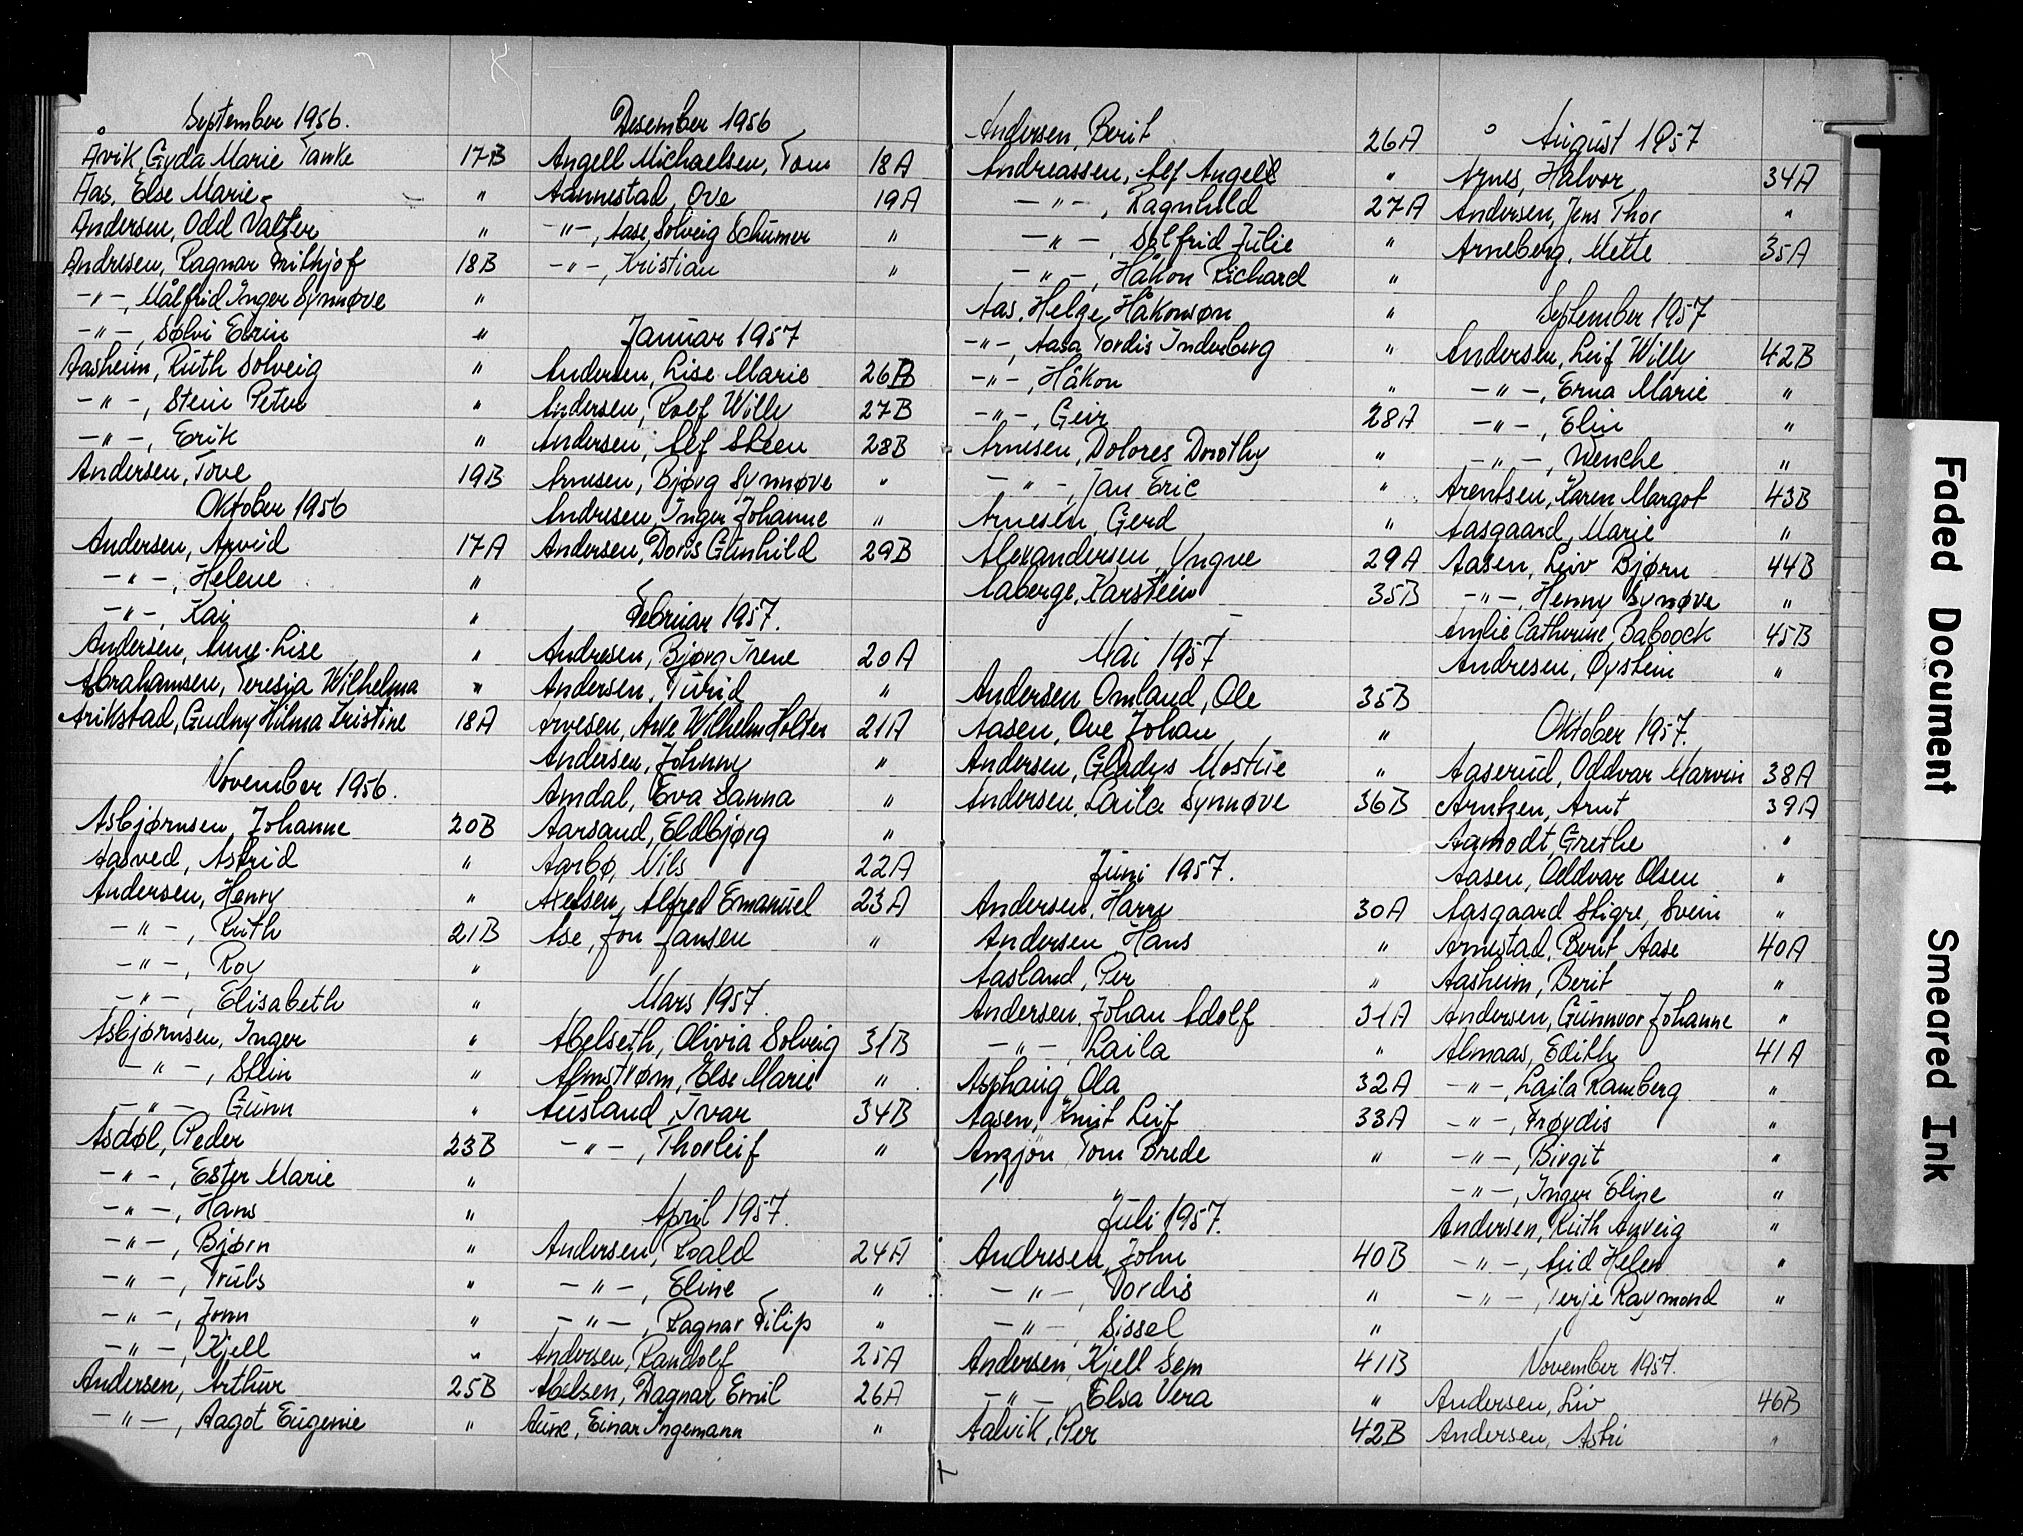 September 1956.
Åvik, Gyda Marie Tanke 17B
Aas, Else Marie "
Andersen, Odd Valter "
Andresen, Ragnar Frithjof 18B
-"-, Målfrid Inger Synnøve "
-"-, Sølvi Elrin "
Aasheim, Ruth Solveig "
-"-, Stein Petter "
-"-, Erik "
Andersen, Tove 19B
Oktober 1956
Andersen, Arvid 17A
-"-, Helene "
-"-, Kai "
Andersen, Anne-Lise "
Abrahamsen, Teresia Wilhelma "
Arikstad, Gudny Hilma Kristine 18A
November 1956.
Asbjørnsen, Johanne 20B
Aasved, Astrid "
Andersen, Henry "
-"-, Ruth 21B
-"-, Roy "
-"-, Elisabeth "
Asbjørnsen, Inger "
-"-, Stein "
-"- Gunn "
Asdøl, Peder 23B
-"-, Ester Marie "
-"-, Hans "
-"-, Bjørn "
-"-, Truls "
-"-, Jonn "
-"-, Kjell "
Andersen, Arthur 25B
-"-, Aagot Eugenie "
Desember 1956
Angell Michaelsen, Tom 18A
Aannestad, Ove 19A
-"-, Aase, Solveig Schumer "
-"-, Kristian "
Januar 1957
Andersen, Lise Marie 26B
Andersen, Rolf Willy 27B
Andersen, Alf Steen 28B
Arnesen, Bjørg Synnøve "
Andresen, Inger Johanne "
Andersen, Doris Gunhild 29B
Februar 1957.
Andresen, Bjørg Irene 20A
Andersen, Turid "
Arvesen, Arve Wilhelm Holter 21A
Andersen, Johnny "
Amdal, Eva Sanna "
Aarsand, Eldbjørg "
Aarbø, Nils 22A
Axelsen, Alfred Emanuel 23A
Ase, Jon Jansen "
Mars 1957.
Abelseth, Olivia Solveig 31B
Almstrøm, Else Marie "
Ausland, Ivar 34B
-"-, Thorleif "
April 1957.
Andersen, Roald 24A
-"-, Eline "
-"-, Ragnar Filip "
Andersen, Randolf 25A
Abelsen, Dagnar Emil 26A
Aune, Einar Ingemann "
Andersen, Berit 26A
Andreassen, Alf Angell "
-"-, Ragnhild 27A
-"-, Solfrid Julie "
-"-, Håkon Richard "
Aas, Helge Håkonsøn "
-"-, Aasa Tordis Inderberg "
-"-, Håkon "
-"-, Geir 28A
Arnesen, Dolores Dorothy "
-"-, Jan Eric "
Arnesen, Gerd "
Alexandersen, Yngve 29A
Aaberge, Karstein 35B
Mai 1957
Andersen Omland, Ole 35B
Aasen, Ove Johan "
Andersen, Gladys Mostue "
Andersen, Laila Synnøve 36B
Juni 1957.
Andersen, Harry 30A
Andersen Hans "
Aasland, Per "
Andersen, Johan Adolf 31A
-"-, Laila "
Asphaug Ola 32A
Aasen, Knut Leif 33A
Anzjøn, Tom Brede "
Juli 1957.
Andresen, John 40B
-"-, Tordis "
-"- Sissel "
Andersen, Kjell Sem 41B
-"- Elsa Vera "
Aalvik, Per 42B
August 1957
Årnes, Halvor 34A
Andersen, Jens Thor "
Arneberg, Mette 35A
September 1957
Andersen, Leif Willy 42B
-"-, Erna Marie "
-"-, Elin "
-"-, Wenche "
Arentsen, Karen Margot 43B
Aasgaard, Marie "
Aasen, Liv Bjørn 44B
-"-, Henny Synøve "
Amlie Catherine, Baboock 45B
Andresen, Øystein "
Oktober 1957.
Aaserud, Oddvar Marvin 38A
Arntzen, Arnt 39A
Aamodt, Grethe "
Aasen, Oddvar Olsen "
Aasgaard Stigre, Svein "
Arnestad, Berit Aase 40A
Aasheim, Berit "
Andersen, Gunnvor Johanne "
Almaas, Edith 41A
-"-, Laila Ramberg "
-"-, Frøydis "
-"-, Birgit "
-"-, Inger Eline "
Andersen, Ruth Anveig "
-"-, Arid Helen "
-"-, Terje Raymond "
November 1957.
Andersen, Liv 46B
Andersen, Astri "
Faded Document
Smeared Ink